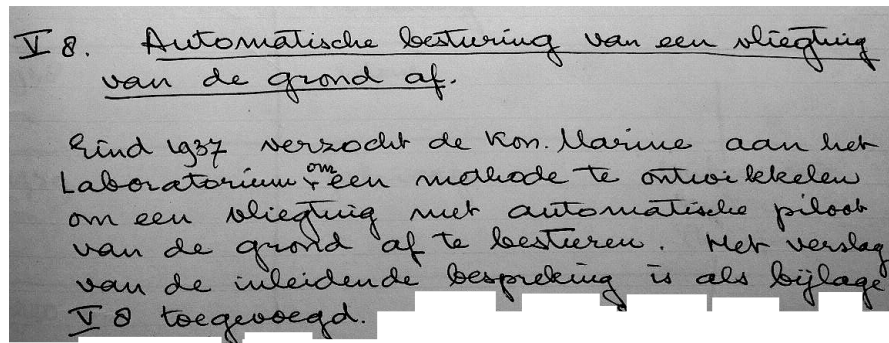 V 8. Automatische besturing van een vliegtuig
van de grond af.
Eind 1937 verzocht de Kon. Marine aan het
Laboratorium om een methode te ontwikkelen
om een vliegtuig met automatische piloot
van de grond af te besturen. Het verslag
van de inleidende bespreking is als bijlage
V 8 toegevoegd.